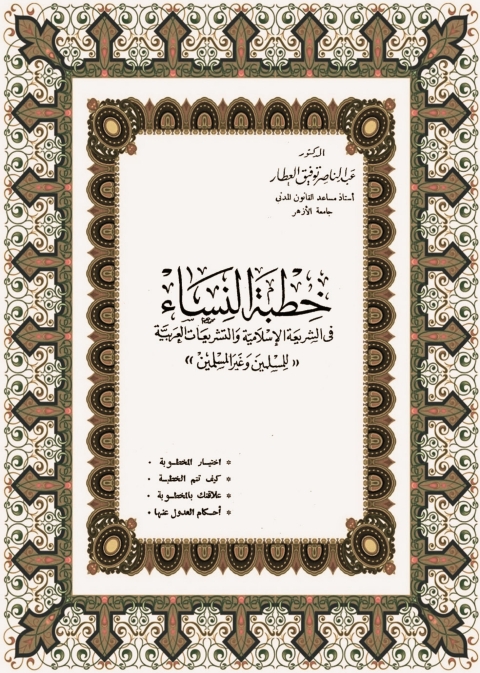 الدكتور
عبد الناصر توفيق العطار
أستاذ مساعد القانون المدني
جامعة الأزهر
خِطبَة النِسَاء
فى الشريعة الإسلاميّة والتشريعات العربيّة
« للمسلمين وغير المسلمين »
* اختيار المخطوبة •
* كيف تتم الخطبة •
* علاقتك بالمخطوبة •
* أحكام العدول عنها •